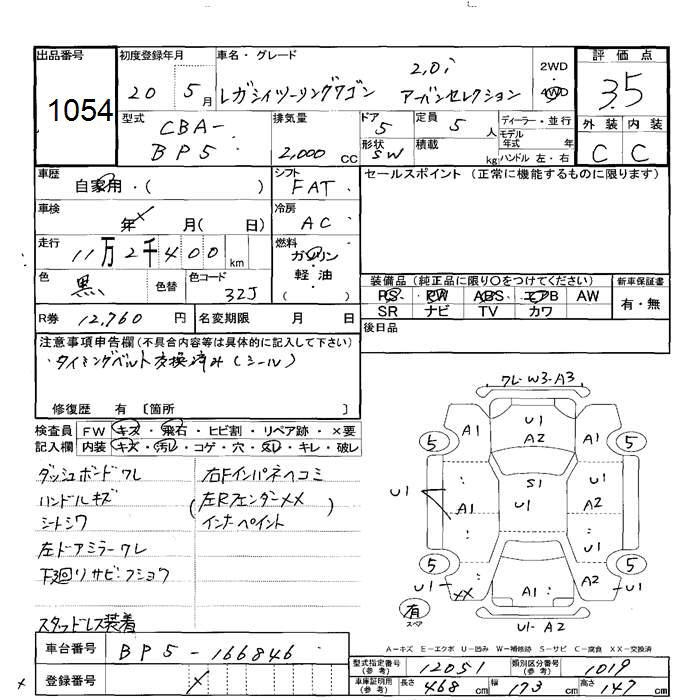 出品番号
1054
初度登録年月
20 5月
車名・グレード
2.0i
レガシィツーリングワゴン アーバンセレクション
2WD
4WD
評価点
3.5
外装 内装
C C
型式
CBA-
BP5
排気量
2,000 CC
ドア
5
形状
SW
定員
5 人
積載
kg
ディーラー・並行
モデル年式 年
ハンドル 左・右
車歴
自家用・( )
シフト
FAT
セールスポイント (正常に機能するものに限ります)
車検
年 月( 日)
冷房
AC
走行
11万2千400km
燃料
ガソリン
軽・油
( )
色
黒
色替
色コード
32J
装備品(純正品に限り○をつけてください)
PS PW ABS エアB AW
SR ナビ TV カワ
新車保証書
有・無
R券 12,760 円
名変期限 月 日
後日品
注意事項申告欄(不具合内容等は具体的に記入して下さい)
・タイミングベルト交換済み(シール)
修復歴 有 〔箇所 〕
検査員 FW キズ・飛石・ヒビ割・リペア跡・×要
記入欄 内装 キズ・汚レ・コゲ・穴・スレ・キレ・破レ
ダッシュボードワレ
ハンドルキズ
シートシワ
左ドアミラーワレ
下廻リサビ・フショウ
スタッドレス装着
右Fインパネヘコミ
(左Rフェンダーメメ)
インナーペイント
ワレ・W3・A3
A1 U1 A2 A1
5 5
S1
U1 A1 U1 A2
5 5
U1 XX A1 A2 U1
有
スペア
U1・A2
A-キズ E-エクボ U-凹み W-補修跡 S-サビ C-腐食 XX-交換済
車台番号 BP5-166846
登録番号
型式指定番号(参考) 12051
類別区分番号(参考) 1019
車庫証明用(参考) 長さ 468 cm 幅 173 cm 高さ 147 cm